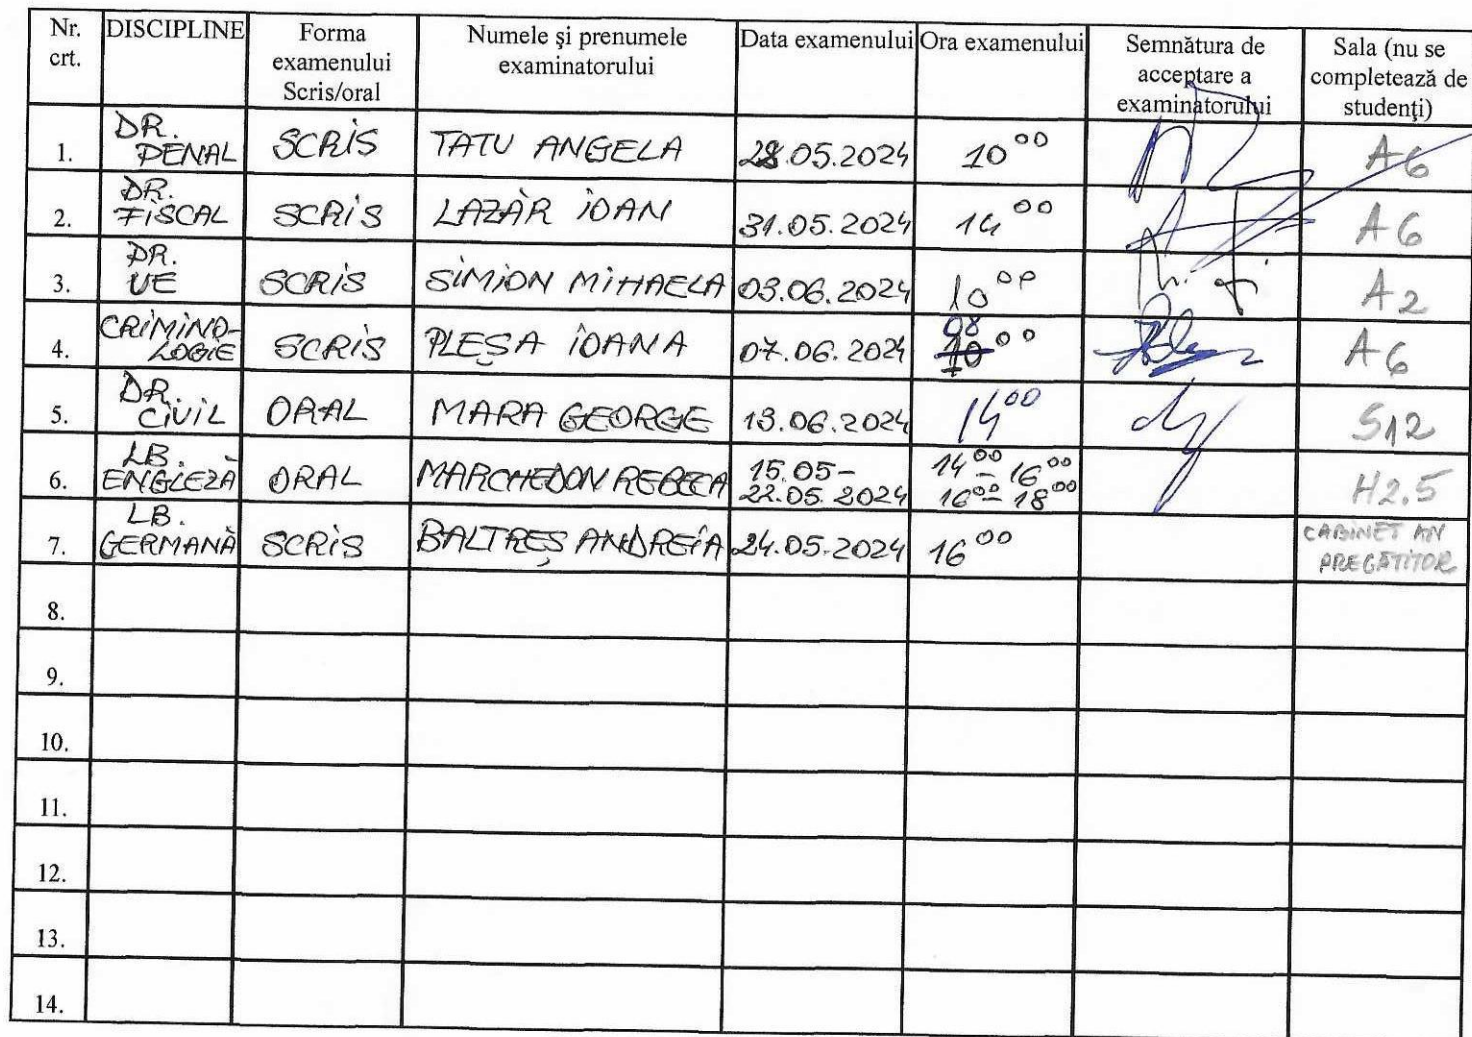 Nr. crt. DISCIPLINE Forma examenului Scris/oral Numele şi prenumele examinatorului Data examenului Ora examenului Semnătura de acceptare a examinatorului Sala (nu se completează de studenţi)
1. DR. PENAL SCRIS TATU ANGELA 28.05.2024 10 00 A6
2. DR. FISCAL SCRIS LAZĂR IOAN 31.05.2024 14 00 A6
3. DR. UE SCRIS SIMION MIHAELA 03.06.2024 10 00 A2
4. CRIMINO-LOGIE SCRIS PLEŞA IOANA 07.06.2024 08 00 A6
5. DR. CIVIL ORAL MARA GEORGE 13.06.2024 14 00 S12
6. LB. ENGLEZĂ ORAL MARCHEDON REBECA 15.05-22.05.2024 14 00 - 16 00 16 00 - 18 00 H2.5
7. LB. GERMANĂ SCRIS BALTREŞ ANDREIA 24.05.2024 16 00 CABINET AN PREGĂTITOR
8.
9.
10.
11.
12.
13.
14.